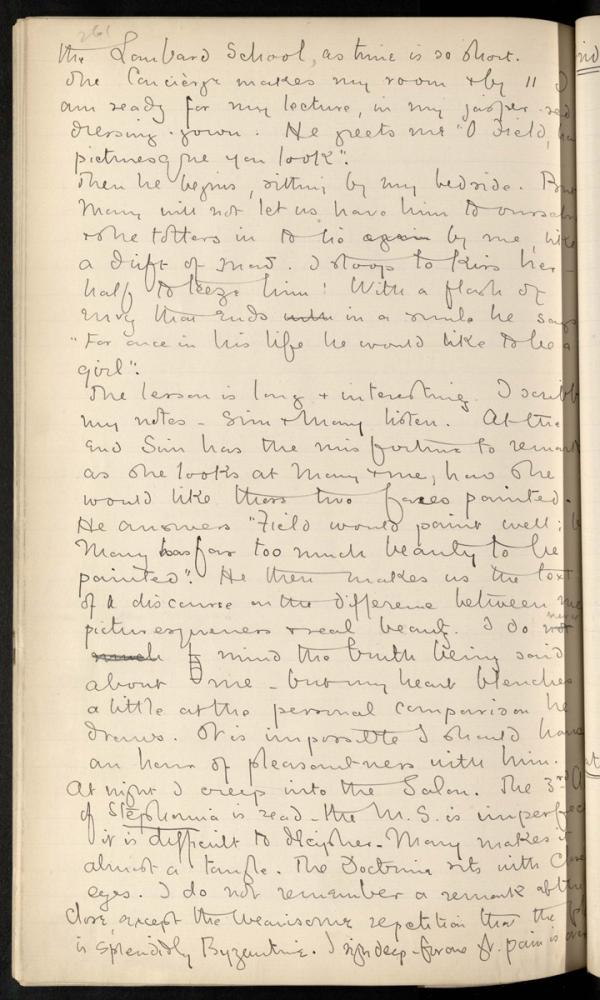 261
the Lombard School, as time is so short.
The Concierge makes my room & by 11 I
am ready for my lecture, in my jasper-red
dressing-gown. He greets me "O Field,
picturesque you look".
Then he begins, sitting by my bedside. But
Mary will not let us have him to ourselves
& she totters in to lie again by me, like
a drift of snow. I stoop to kiss her —
half to tease him! With a flash of
envy that ends with in a smile he says
"For once in his life he would like to be a
girl".
The lesson is long & interesting. I scribble
my notes – Sim & Mary listen. At the
end Sim has the misfortune to remark
as she looks at Mary & me, how she
would like those two faces painted.
He answers "Field would paint well;
Mary has far too much beauty to be
painted". He then makes us the text
of a discourse on the difference between
picturesqueness & real beauty. I do not never
much mind the truth being said
about me – but my heart blenches
a little at the personal comparison he
draws. It is impossible I should have
an hour of pleasantness with him.
At night I creep into the Salon. The 3rd A
of Stephania is read – the M.S. is imperfect
it is difficult to decipher – Mary makes it
almost a tangle. The Doctrine sits with close
eyes. I do not remember a remark at the
close, except the wearisome repetition that the
is splendidly Byzantine. I sigh deep – for one pain is over